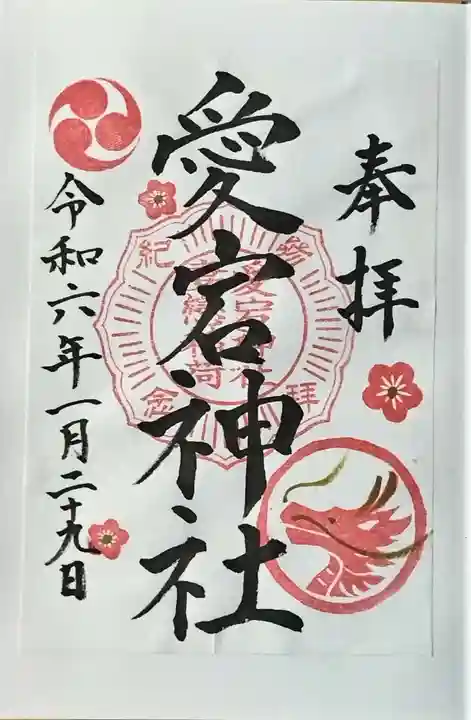 奉拝
愛宕神社
令和六年一月二十九日
参拝
紀念